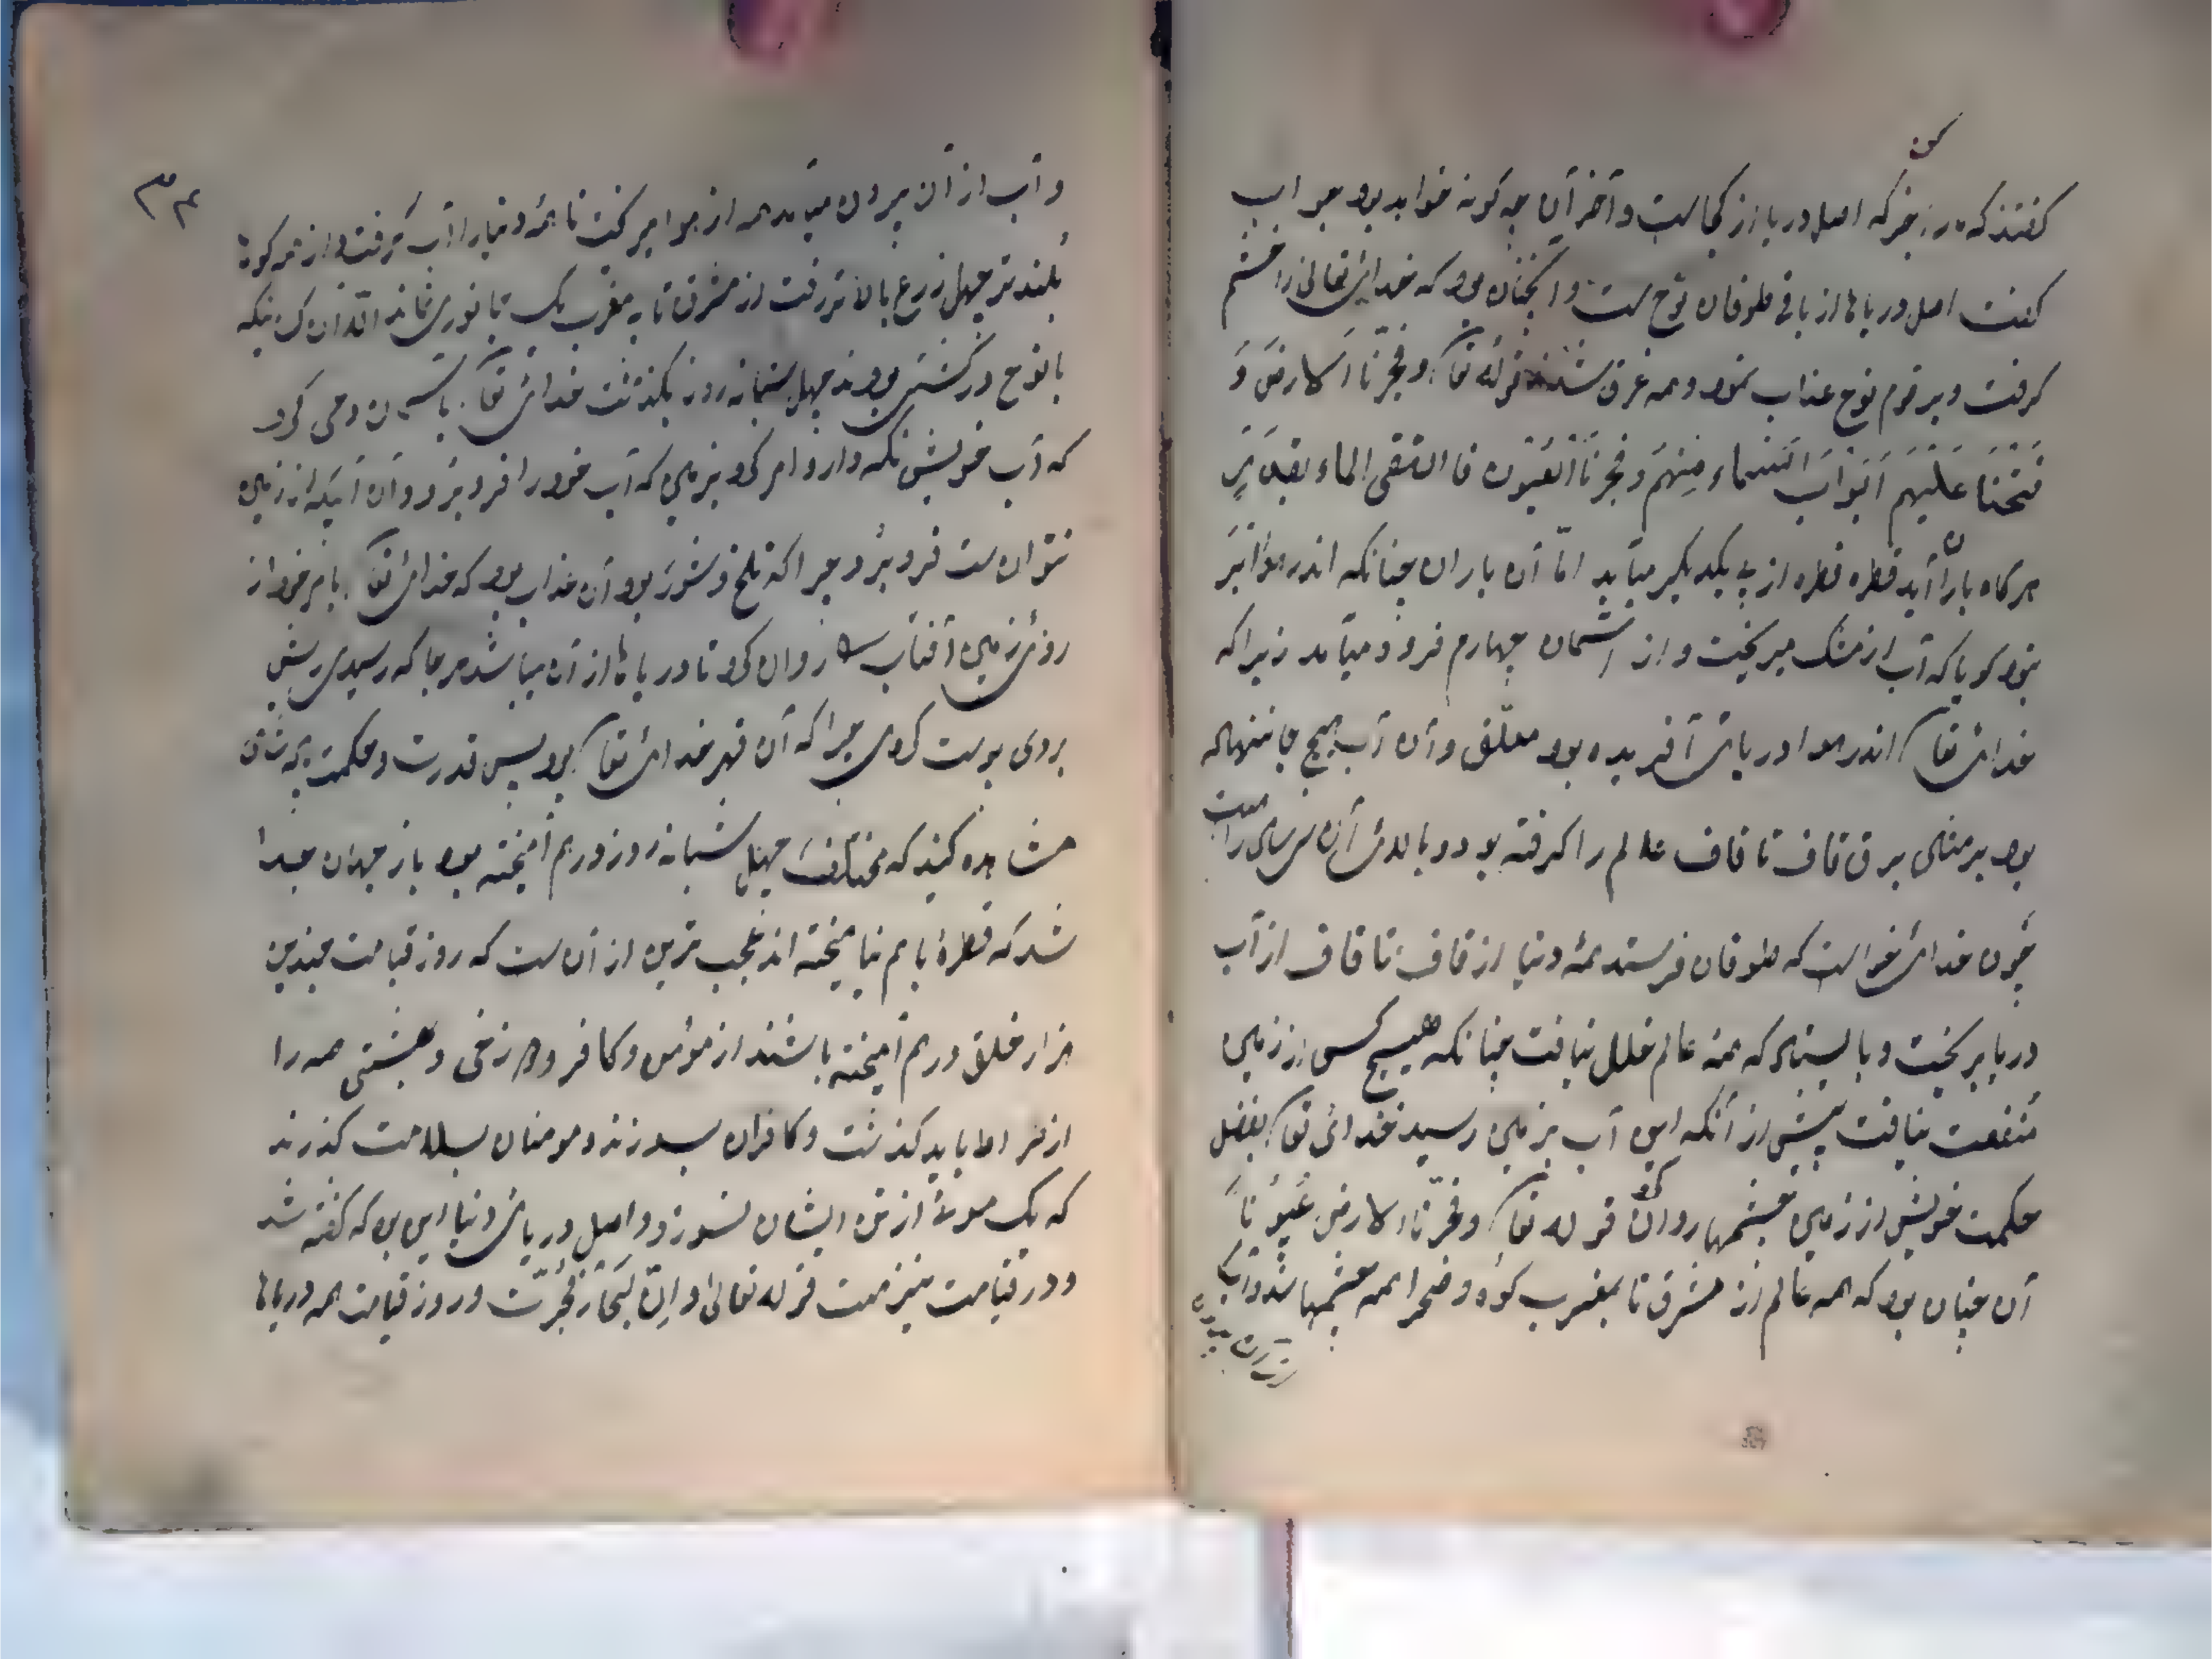 کن
کفتند که ما را خبر که اصل دریا از کجا است و آخر آن چه کونه خواهد بود جواب
کفت اصل دریاها از باقی طوفان نوح است و آنچنان بود که خدای تعالی را خشم
کرفت و بر قوم نوح عذاب نمود و همه غرق شدند قوله تعا وفجرنا الارض و
فتحنا علیهم ابواب السماء منهمر وفجرنا العیون فالتقی الماء بقدر
هر کاه باران آید قطره قطره از پی یکدیکر میآید امّا آن باران چنانکه اندر هوا ابر
نبود کویا که آب از مشک میریخت و از آسمان چهارم فرود میآمد زیرا که
خدای تعا اندر هوا دریای آفریده بود معلّق و آن آب هیچ جا ننهاله
بود بر مثالی برق قاف تا قاف عالم را کرفته بود و بالای آن
چون خدای خواست که طوفان فرستد همهٔ دنیا از قاف تا قاف از آب
دریا بریخت و بالیستادی که همه عالم خلل نیافت چنانکه هیچ کس از زمین
منفعت نیافت پیش از آنکه این آب بزمین رسید خدای تعا بفضل
حکمت خویش از زمین چشمها روان کرد قوله تعا وفجرنا الارض عیوناً
آن چنان بود که همه عالم از مشرق تا بمغرب کوه و صحرا همه چشمها شد و آب
از آن بیرون
۳۴
و آب از آن بیرون میآمد همه از هوا میریخت تا همهٔ دنیا را آب کرفت و از هر کوه
بلندتر چهل زرع بالاتر رفت از مشرق تا به مغرب یک جانوری نماند الّا آن کسانیکه
با نوح در کشتی بودند چهل شبانه روز بکذشت خدای تعا بآسمان وحی کرد
که آب خویش نکه دار و امر کرد بزمین که آب خود را فرو برد و آن آبیکه از زمین
نتوانست فرو برد چرا که تلخ و شور بود آن عذاب بود که خدای تعا بامر خود از
روی زمین آفتاب را روان کرد تا دریاها از آن پیدا شد هر جا که رسیدی ریش
بروی پوست کردی چرا که آن قهر خدای تعا بود پس قدرت و حکمت
مشاهده کنید که مختلف چهل شبانه روز درهم آمیخته بود باز چهان جدا
شد که قطرهٔ باهم نیامیخته اند عجب ترین از آن است که روز قیامت چندین
هزار خلق درهم آمیخته باشند از مؤمن و کافر و دوزخی و بهشتی همه را
از صراط باید کذشت و کافران بسوزند و مومنان بسلامت کذرند
که یک موئی از تن ایشان نسوزد و اصل دریای دنیا این بود که کفته شد
و در قیامت نیز هست قوله تعالی و اذا البحار فجّرت و روز قیامت همه دریاها